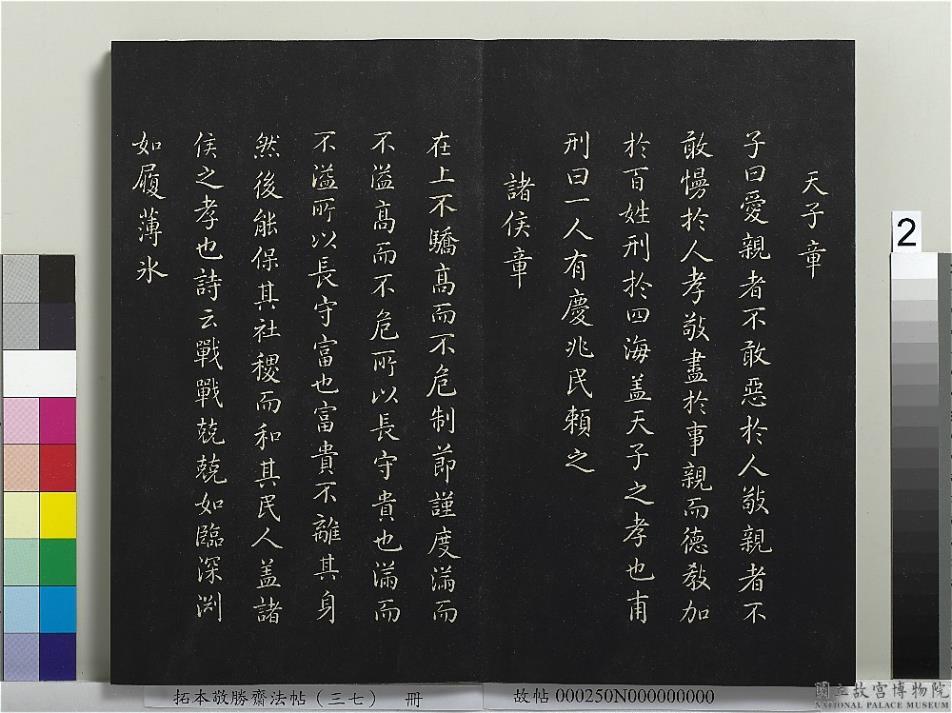 天子章
子曰愛親者不敢惡於人敬親者不
敢慢於人孝敬盡於事親而德教加
於百姓刑於四海盖天子之孝也甫
刑曰一人有慶兆民賴之
諸侯章
在上不驕高而不危制節謹度滿而
不溢高而不危所以長守貴也滿而
不溢所以長守富也富貴不離其身
然後能保其社稷而和其民人盖諸
侯之孝也詩云戰戰兢兢如臨深渕
如履薄氷
2
拓本敬勝齋法帖（三七） 冊
故帖 000250N000000000
國立故宮博物院
NATIONAL PALACE MUSEUM